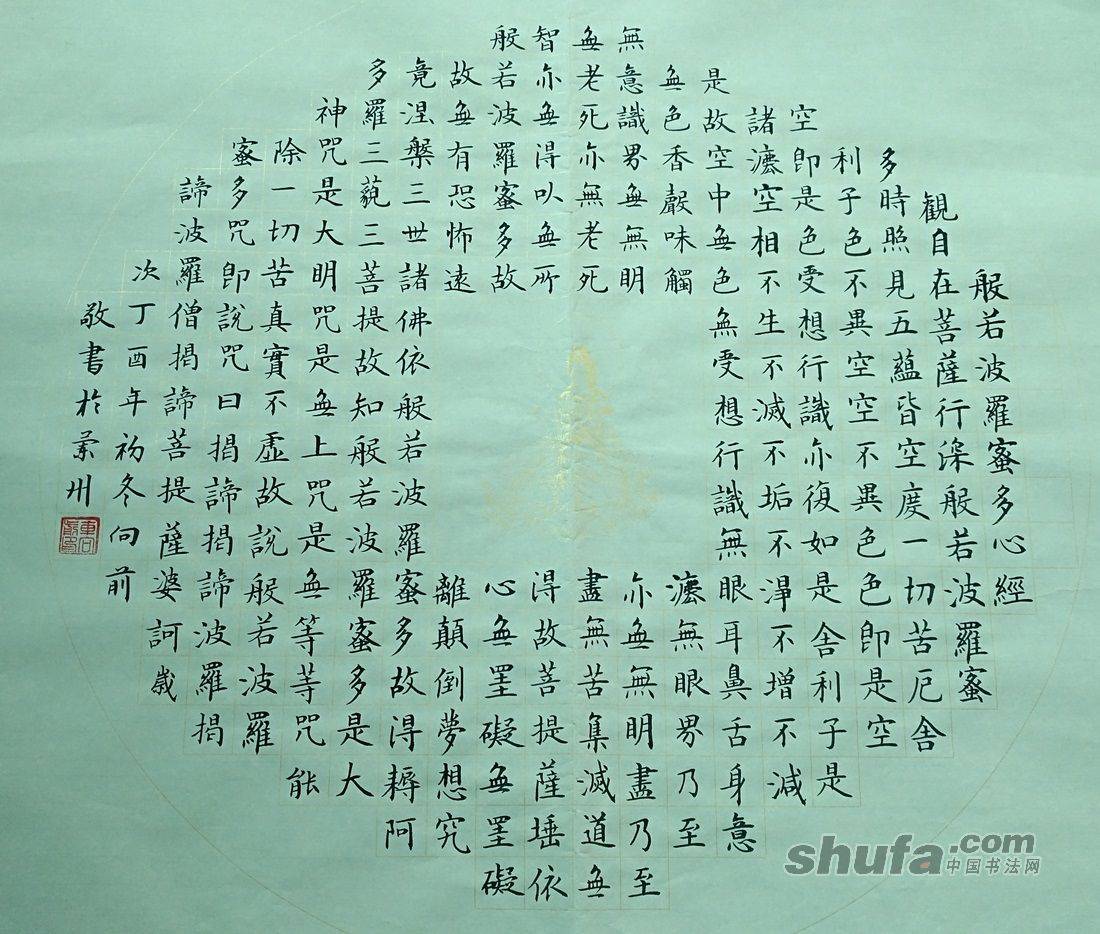 般若波羅蜜多心經
觀自在菩薩行深般若波羅蜜
多時照見五蘊皆空度一切苦厄舍
利子色不異空空不異色色即是空
空即是色受想行識亦復如是舍利子是
諸灋空相不生不滅不垢不淨不增不減
是故空中無色無受想行識無眼耳鼻舌身意
無色香聲味觸灋無眼界乃至
無意識界無無明亦無無明盡乃至
無老死亦無老死盡無苦集滅道無
智亦無得以無所得故菩提薩埵依
般若波羅蜜多故心無罣礙無罣礙
故無有恐怖遠離顛倒夢想究
竟涅槃三世諸佛依般若波羅蜜多故得耨阿
多羅三藐三菩提故知般若波羅蜜多是大
神咒是大明咒是無上咒是無等等咒能
除一切苦真實不虛故說般若波羅
蜜多咒即說咒曰揭諦揭諦波羅揭
諦波羅僧揭諦菩提薩婆訶歲
次丁酉年初冬向前
敬書於州
shufa.com
中国书法网